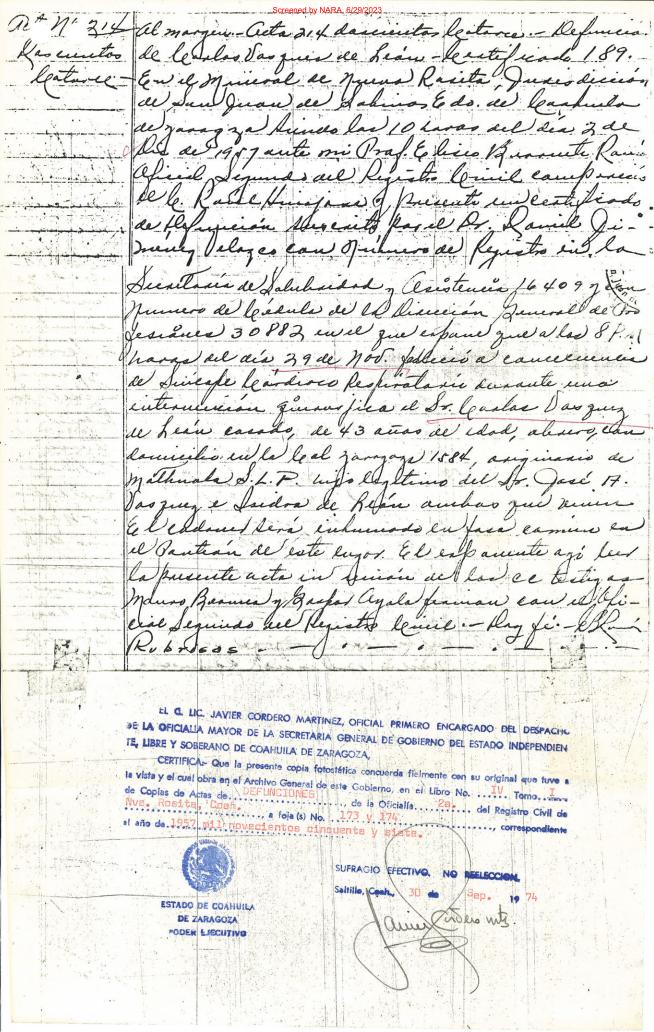 Screened by NARA, 6/29/2023
Nº 214
Doscientos
Catorce
Al margen.- Acta 214 doscientos Catorce.- Defunción
de Carlos Vasquez de León.- Certificado 189.
En el Mineral de Nueva Rosita, Jurisdicción
de San Juan de Sabinas Edo. de Coahuila
de Zaragoza siendo las 10 horas del día 2 de
Dic de 1957 ante mi Prof. Eliseo
Oficial Segundo del Registro Civil compareció
el C. Raúl Hinojosa y presente un certificado
de Defunción suscrito por el Dr. Daniel Ji-
menez Velazco con Número de Registro en la
Secretaría de Salubridad y Asistencia 16409 y con
numero de Cédula de la Dirección General de Pro
fesiones 30882 en el que expone que a las 8 P.M
horas del día 29 de Nov. falleció a concecuencia
de Sincope Cárdioco Respiratorio durante una
intervención el Sr. Carlos Vasquez
de León casado, de 43 años de edad, obrero, con
domicilio en la Cal Zaragoza 1584, originario de
Mathuala S.L.P. hijo legítimo del Sr. José A.
Vasquez e Isidra de León ambos que viven
El cadaver será inhumado en fosa comun en
el Panteón de este lugar. El exponente leer
la presente acta en unión de los cc testigos
Mauro y Gaspar Ayala firman con el Ofi-
cial Segundo del Registro Civil.- Doy fé.-
Rubricas
EL C. LIC. JAVIER CORDERO MARTINEZ, OFICIAL PRIMERO ENCARGADO DEL DESPACHO
DE LA OFICIALIA MAYOR DE LA SECRETARIA GENERAL DE GOBIERNO DEL ESTADO INDEPENDIEN
TE, LIBRE Y SOBERANO DE COAHUILA DE ZARAGOZA,
CERTIFICA:- Que la presente copia fotostática concuerda fielmente con su original que tuve a
la vista y el cual obra en el Archivo General de este Gobierno, en el Libro No. IV Tomo I
de Copias de Actas de DEFUNCIONES, de la Oficialía 2a. del Registro Civil de
Nva. Rosita, Coah., a foja (s) No. 173 y 174, correspondiente
al año de 1957 mil novecientos cincuenta y siete.
SUFRAGIO EFECTIVO. NO REELECCION.
Saltillo, Coah., 30 de Sep. 1974
ESTADO DE COAHUILA
DE ZARAGOZA
PODER EJECUTIVO
Javier Cordero mtz.